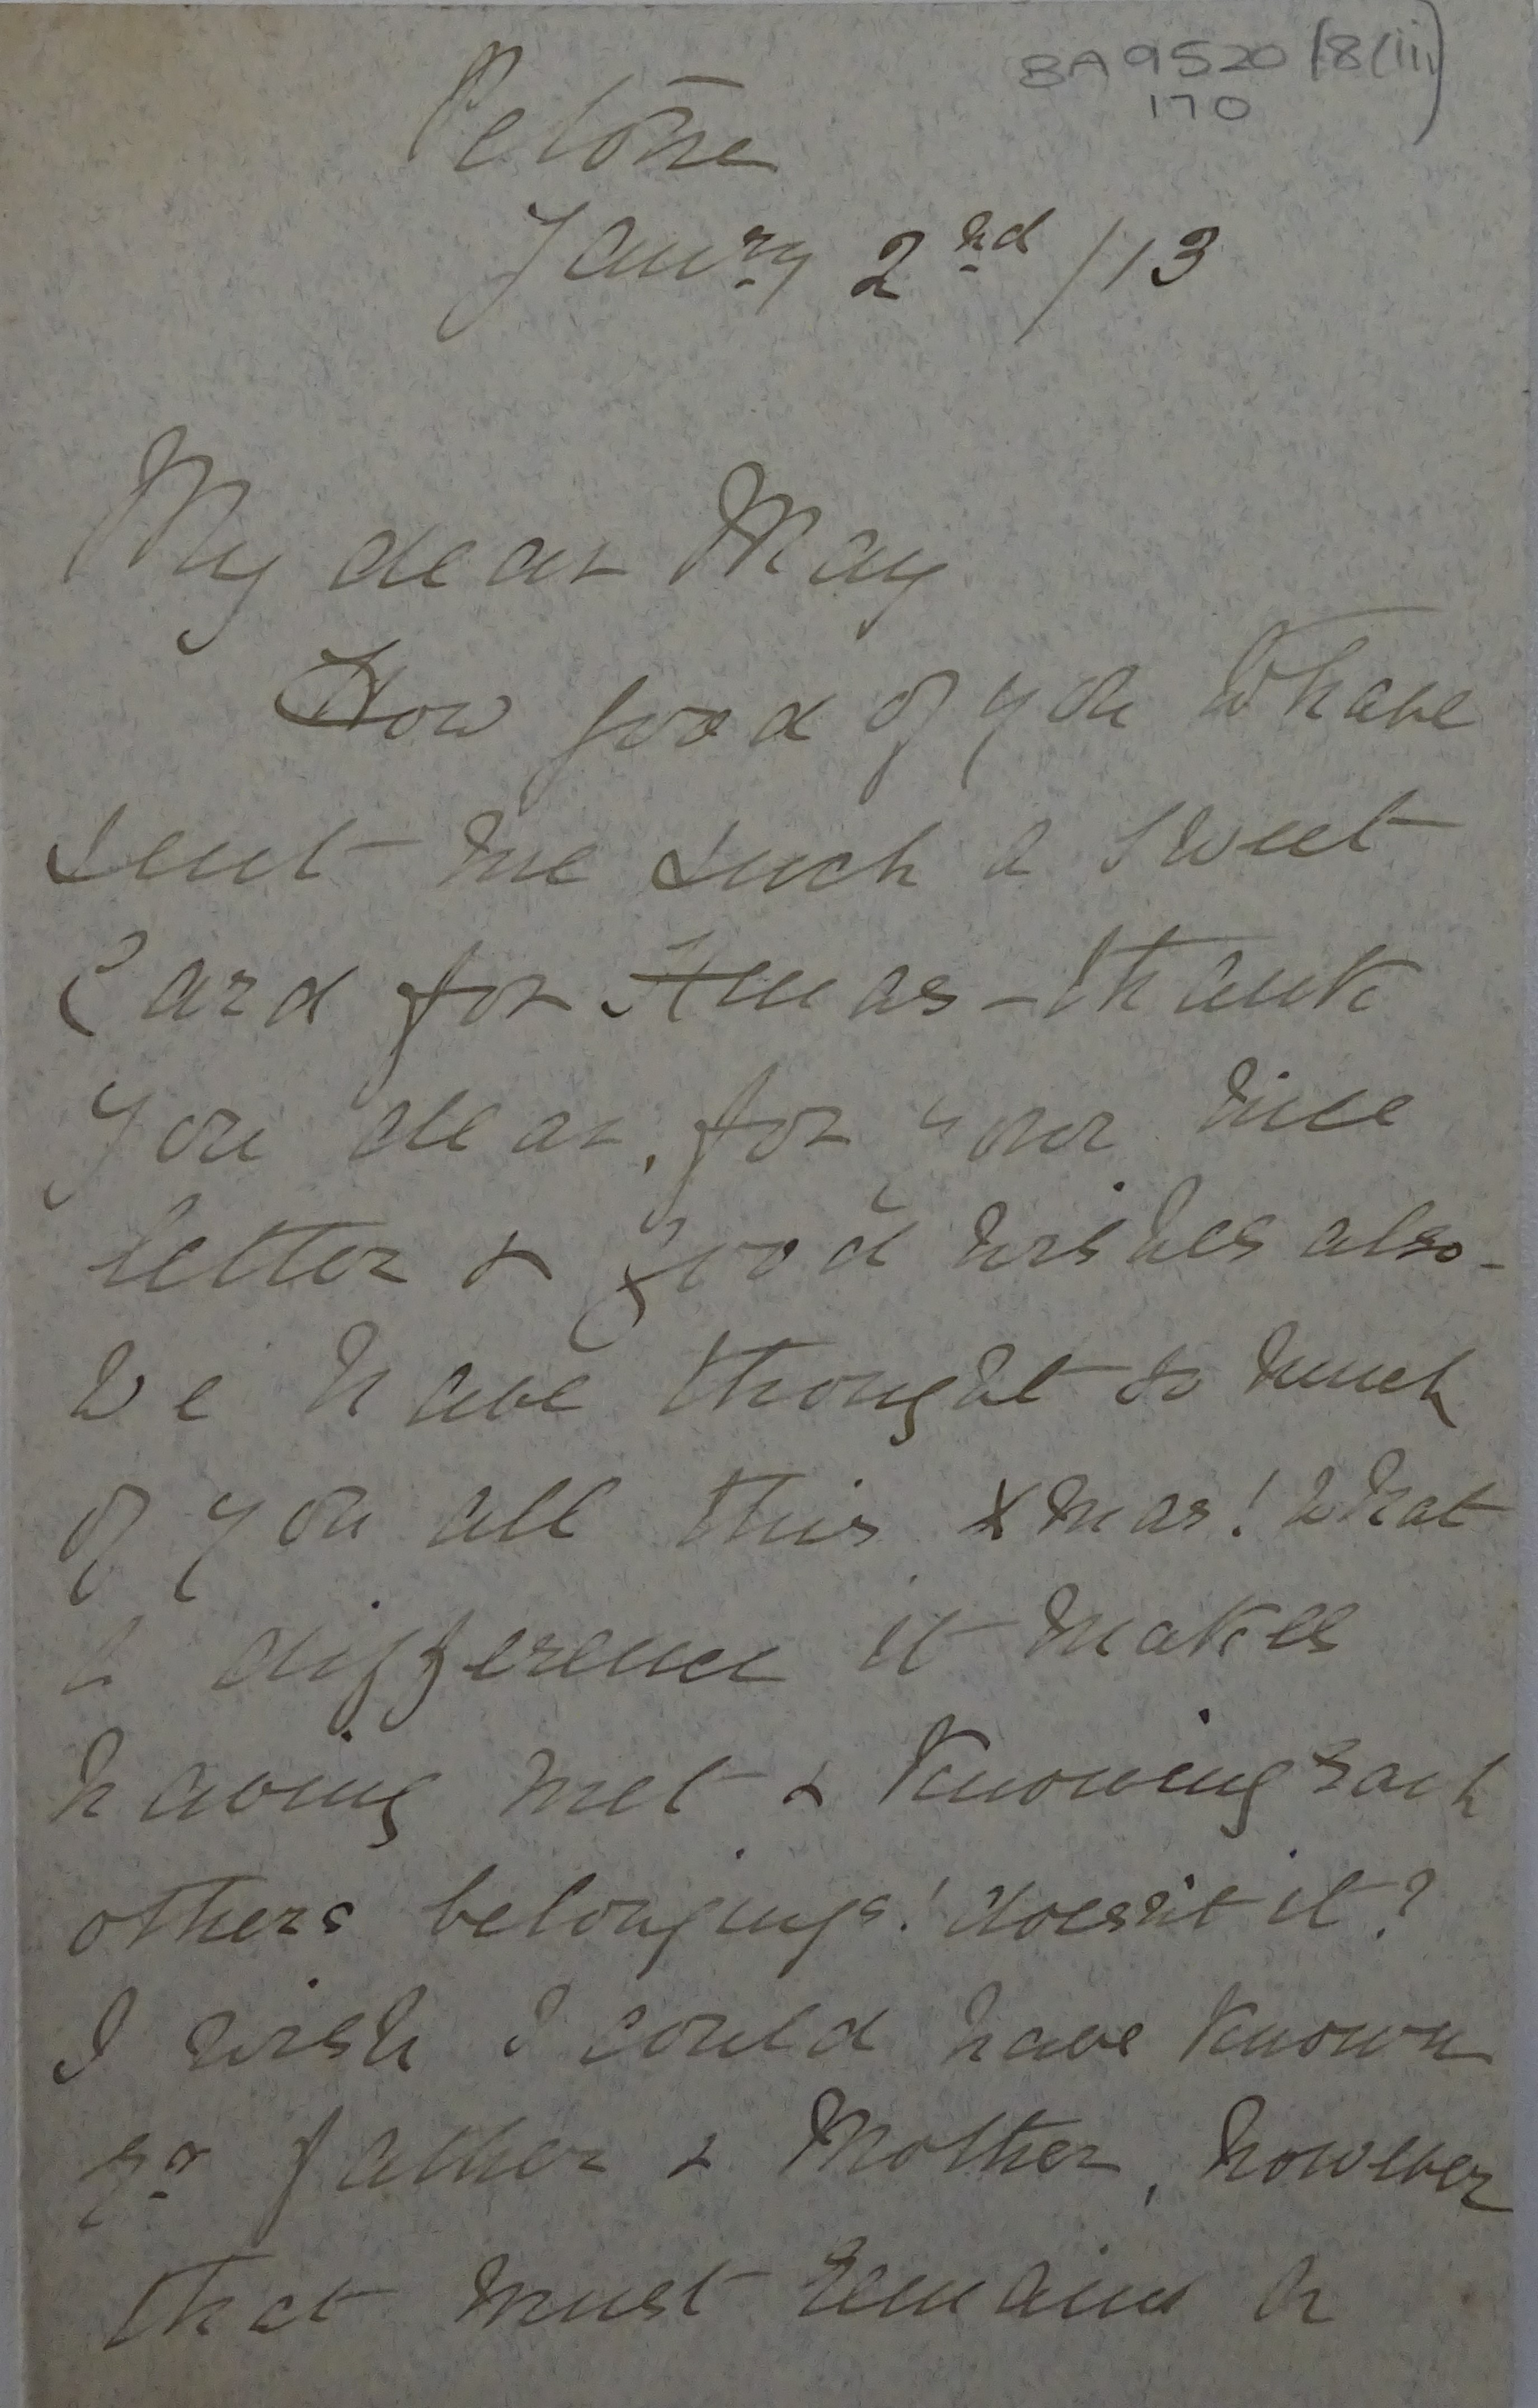 BA 9520/8(iii)
170
Petone
Janry 2nd /13
My dear May
How good of you to have
sent me such a sweet
Card for Xmas - thank
you dear, for your nice
letter & good wishes also -
We have thought so much
of you all this Xmas! What
a difference it makes
having met & knowing each
others belongings! doesn't it?
I wish I could have known
yr Father & Mother, however
that must remain a